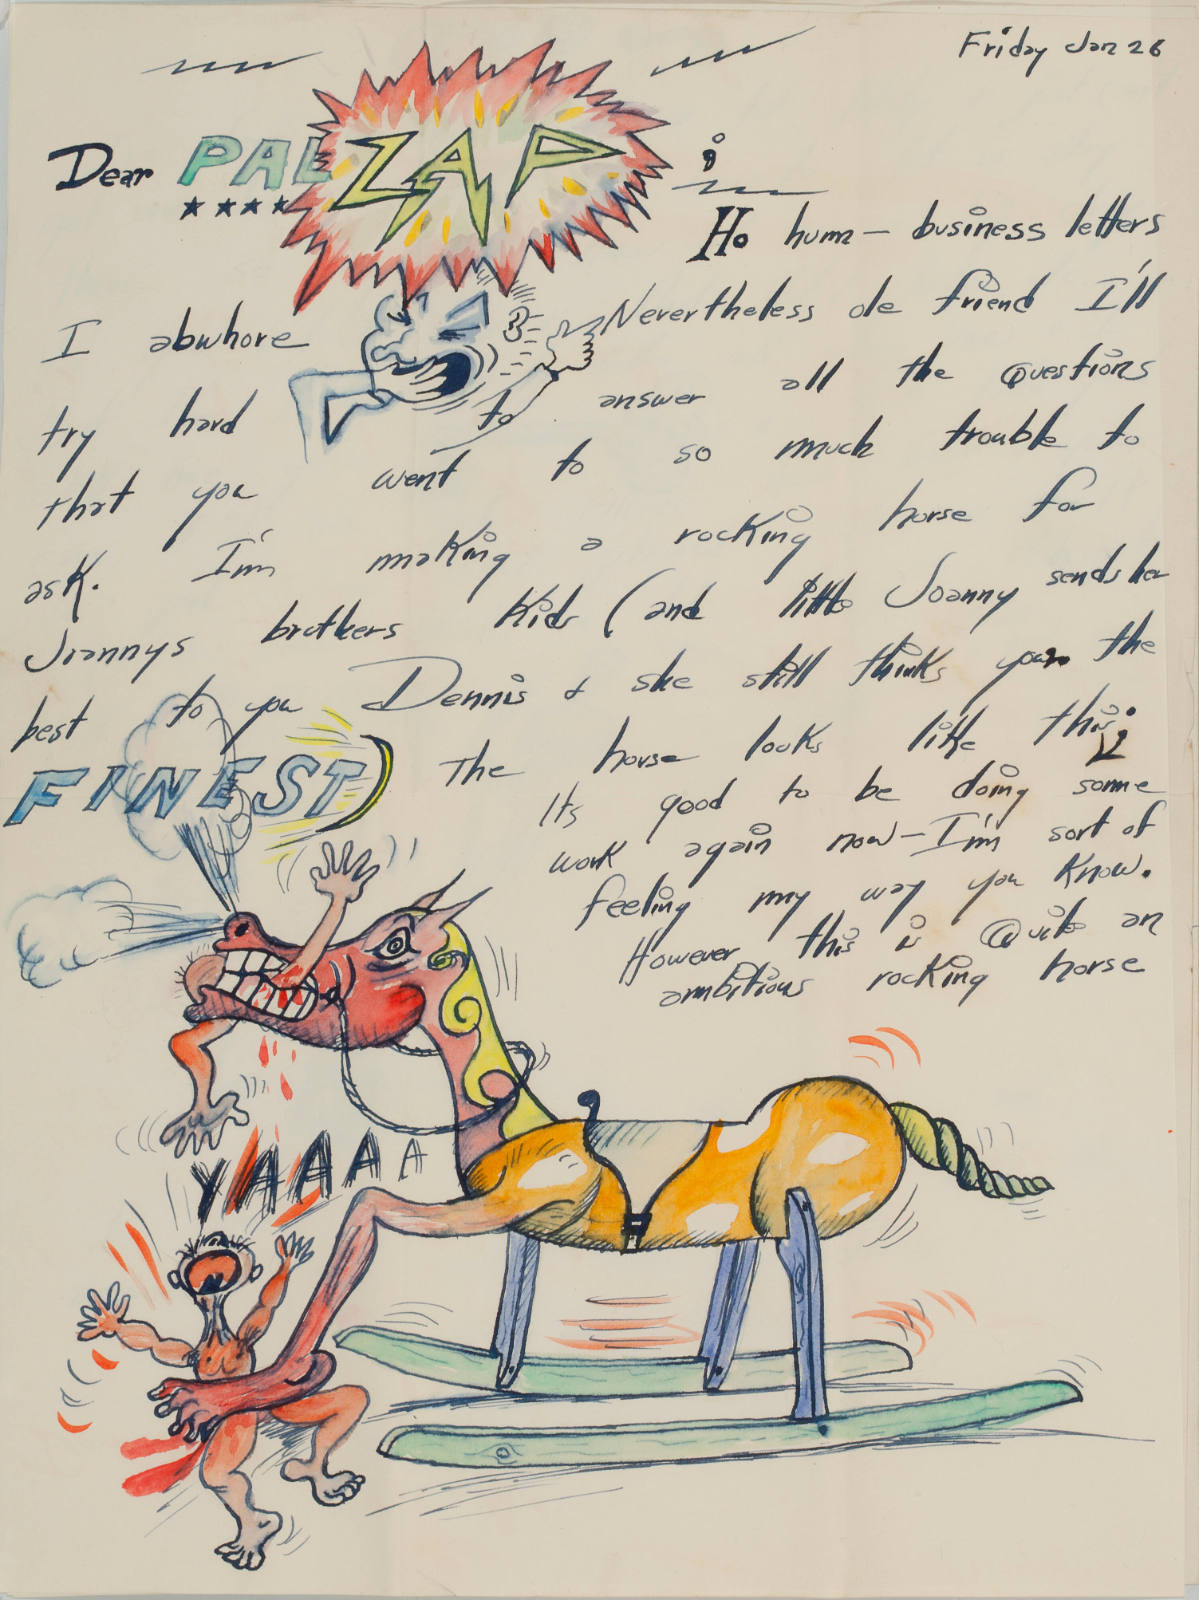 Friday Jan 26
Dear PAL ZAP ;
Ho hum — business letters
I abwhore Nevertheless ole friend I'll
try hard to answer all the Questions
that you went to so much trouble to
ask. I'm making a rocking horse for
Joannys brothers Kids (and little Joanny sends her
best to you Dennis & she still thinks your the
FINEST) The horse looks like this;
Its good to be doing some
work again now — I'm sort of
feeling my way you know.
However this is Quite an
ambitious rocking horse
YAAAAA